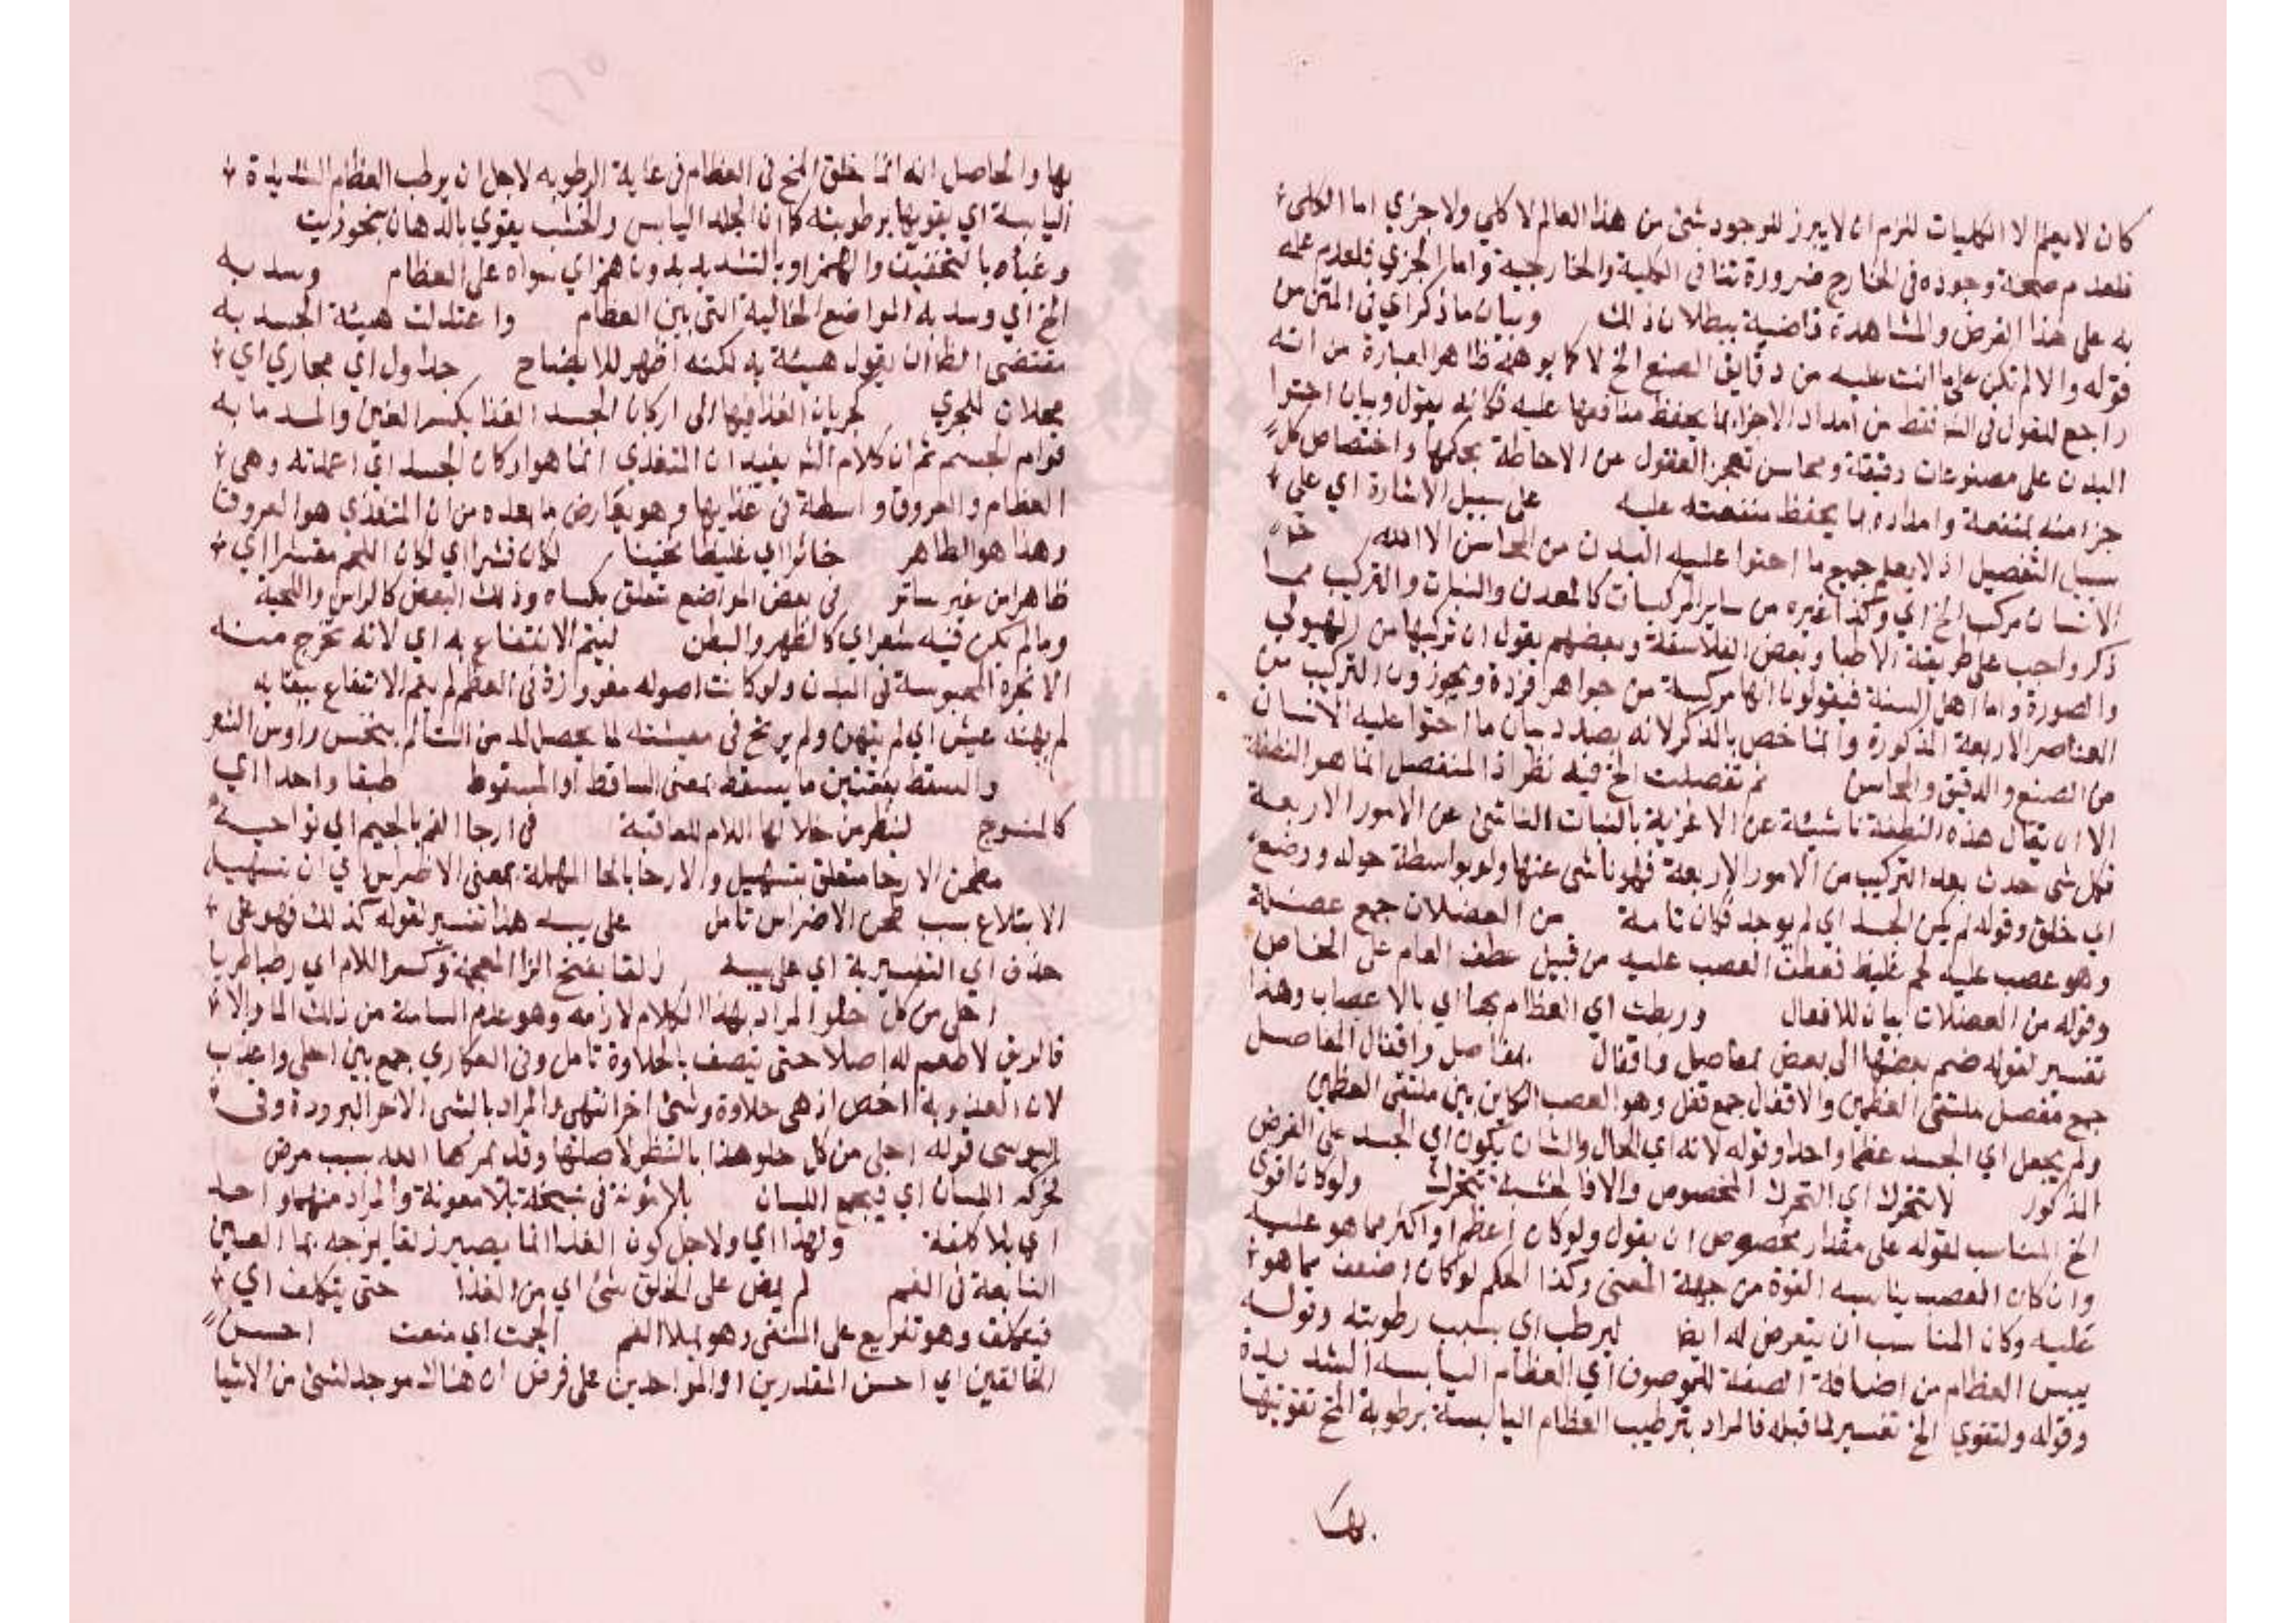 كان لا يعلم الا الكليات لزم ان لا يبرز للوجود شئ من هذا العالم لا كلي ولا جزي اما الكلي
فلعدم صحة وجوده في الخارج ضرورة تنافي الكلية والخارجية واما الجزي فلعدم علمه
به على هذا الفرض والمشاهدة قاضية ببطلان ذلك وبيان ما ذكر اي في المتن من
قوله والا لم تكن على ما انت عليه من دقايق الصنع الخ لا كما يوهمه ظاهر العبارة من انه
راجع لقول في الشه فقط من امداد الاجزا بما يحفظ منافعها عليه فكانه يقول وبيان احتوا
البدن على مصنوعات دقيقة ومحاسن تعجز العقول عن الاحاطة بحكمها واختصاص كل
جزا منه بمنفعة وامداده بما يحفظ منفعته عليه على سبيل الاشارة اي على
سبيل التفصيل اذ لا يعلم جميع ما احتوا عليه البدن من المحاسن الا الله
الانسان مركب الخ اي وكذا غيره من ساير المركبات كالمعدن والنبات والتركيب مما
ذكر واجب على طريقة الاطبا وبعض الفلاسفة وبعضهم يقول ان تركيبها من الهيولي
والصورة واما اهل السنة فيقولون انها مركبة من جواهر فردة ويجوزون التركيب من
العناصر الاربعة المذكورة وانما خص بالذكر لانه بصدد بيان ما احتوا عليه الانسان
من الصنع والدقيق والمحاسن ثم تفصلت الخ فيه نظر اذ المنفصل انما هو النطفة
الا ان يقال هذه النطفة ناشئة عن الاغزية بالنبات الناشئ عن الامور الاربعة
فكل شئ حدث بعد التركيب من الامور الاربعة فهو ناشئ عنها ولو بواسطة حوله ووضع
اي خلق وقوله لم يكن الجسد اي لم يوجد فكان تامة من العضلات جمع عضلة
وهو عصب عليه لحم غليظ فعطف العصب عليه من قبيل عطف العام على الخاص
وقوله من العضلات بيان للافعال وربطت اي العظام بها اي بالاعصاب وهذا
تفسير لقوله ضم بعضها الى بعض بمفاصل واقفال بمفاصل واقفال المفاصل
جمع مفصل ملتقى العظمين والاقفال جمع قفل وهو العصب الكاين بين ملتقى العظمين
ولم يجعل اي الجسد عظما واحدا وقوله لانه اي الحال والشان يكون اي الجسد على الفرض
المذكور لا يتحرك اي التحرك المخصوص والا فالخشبة تتحرك ولو كان اقوى
الخ المناسب لقوله على مقدار مخصوص ان يقول ولو كان اعظم او اكثر مما هو عليه
وان كان العصب يناسبه القوة من جهة المعنى وكذا الحكم لو كان اضعف مما هو
عليه وكان المناسب ان يتعرض له ايضا ليرطب اي بسبب رطوبته وقوله
يبس العظام من اضافة الصفة للموصوف اي العظام اليابسه الشديدة
وقوله ولتقوي الخ تفسير لما قبله فالمراد بترطيب العظام اليابسة برطوبة المخ تقويتها
بها
بها والحاصل انه انما خلق المخ في العظام في غاية الرطوبه لاجل ان يرطب العظام الشديدة
اليابسة اي يقويها برطوبته كما ان الجلد اليابس والخشب يقوي بالدهان بنحو زيت
وغباه بالتخفيف والهمز او بالتشديد بدون همز اي سواه على العظام وسد به
الخ اي وسد به المواضع الخالية التي بين العظام واعتدلت هيئة الجسد به
مقتضى الظا ان يقول هيئة به لكنه اظهر للايضاح جداول اي مجاري اي
محلات للجري لجريان الغذا فيها الى اركان الجسد الغذا بكسر الغين والمد ما به
قوام الجسم ثم ان كلام الشه يفيد ان المتغذي انما هو اركان الجسد اي اعمدته وهي
العظام والعروق واسطة في غذايها وهو يعارض ما بعده من ان المتغذي هو العروق
وهذا هو الظاهر خاثرا اي غليظا ثخينا لكان قشرا اي لكان اللحم مقشرا اي
ظاهرا من غير ساتر في بعض المواضع متعلق بكساه وذلك البعض كالراس واللحية
وما لم يكن فيه شعر اي كالظهر والبطن ليتم الانتفاع به اي لانه تخرج منه
الابخرة المحبوسة في البدن ولو كانت اصوله مغروزة في العظم لم يتم الانتفاع ببقايه
لم يهنه عيش اي لم يتهن ولم يرتح في معيشته لما يحصل له من التالم بنخس راوس الشعر
والسقط بفتحتين ما يسقط بمعنى الساقط او المسقوط طبقا واحدا اي
كالمنسوج لينظر من خلالها اللام للعاقبة في ارجا الفم بالجيم اي نواحيه
مطحن الارحا متعلق بتسهيل والارحا بالحا المهملة بمعنى الاضراس اي ان تسهيل
الابتلاع بسبب طحن الاضراس تامل على يبسه هذا تفسير لقوله كذلك فهو على
حذف اي التفسيرية اي على يبسه زلقا بفتح الزا المعجمة وكسر اللام اي رطبا طريا
احلى من كل حلو المراد بهذا الكلام لازمه وهو عدم السامة من ذلك الما والا
فالريق لا طعم له اصلا حتى يتصف بالحلاوة تامل وفي العكاري جمع بين احلى واعذب
لان العذوبة اخص اذ هي حلاوة وشئ اخر انتهى والمراد بالشئ الاخر البرودة وفي
اليوسى قوله احلى من كل حلو هذا بالنظر لاصلها وقد يمررها الله بسبب مرض
لحركه اللسان اي فيجمع اللسان بلا مؤنة في نسخة بلا معونة والمراد منهما واحد
اي بلا كلفة ولهذا اي ولاجل كون الغذا انما يصير زلقا بمزجه بما العين
النابعة في الفم لم يمض على الحلق شئ اي من الغذا حتى يتكلف اي
فيتكلف وهو تفريع على المنفى وهو بملا الفم الجمت اي منعت احسن
الخالقين اي احسن المقدرين او الموجدين على فرض ان هناك موجد لشئ من الاشيا